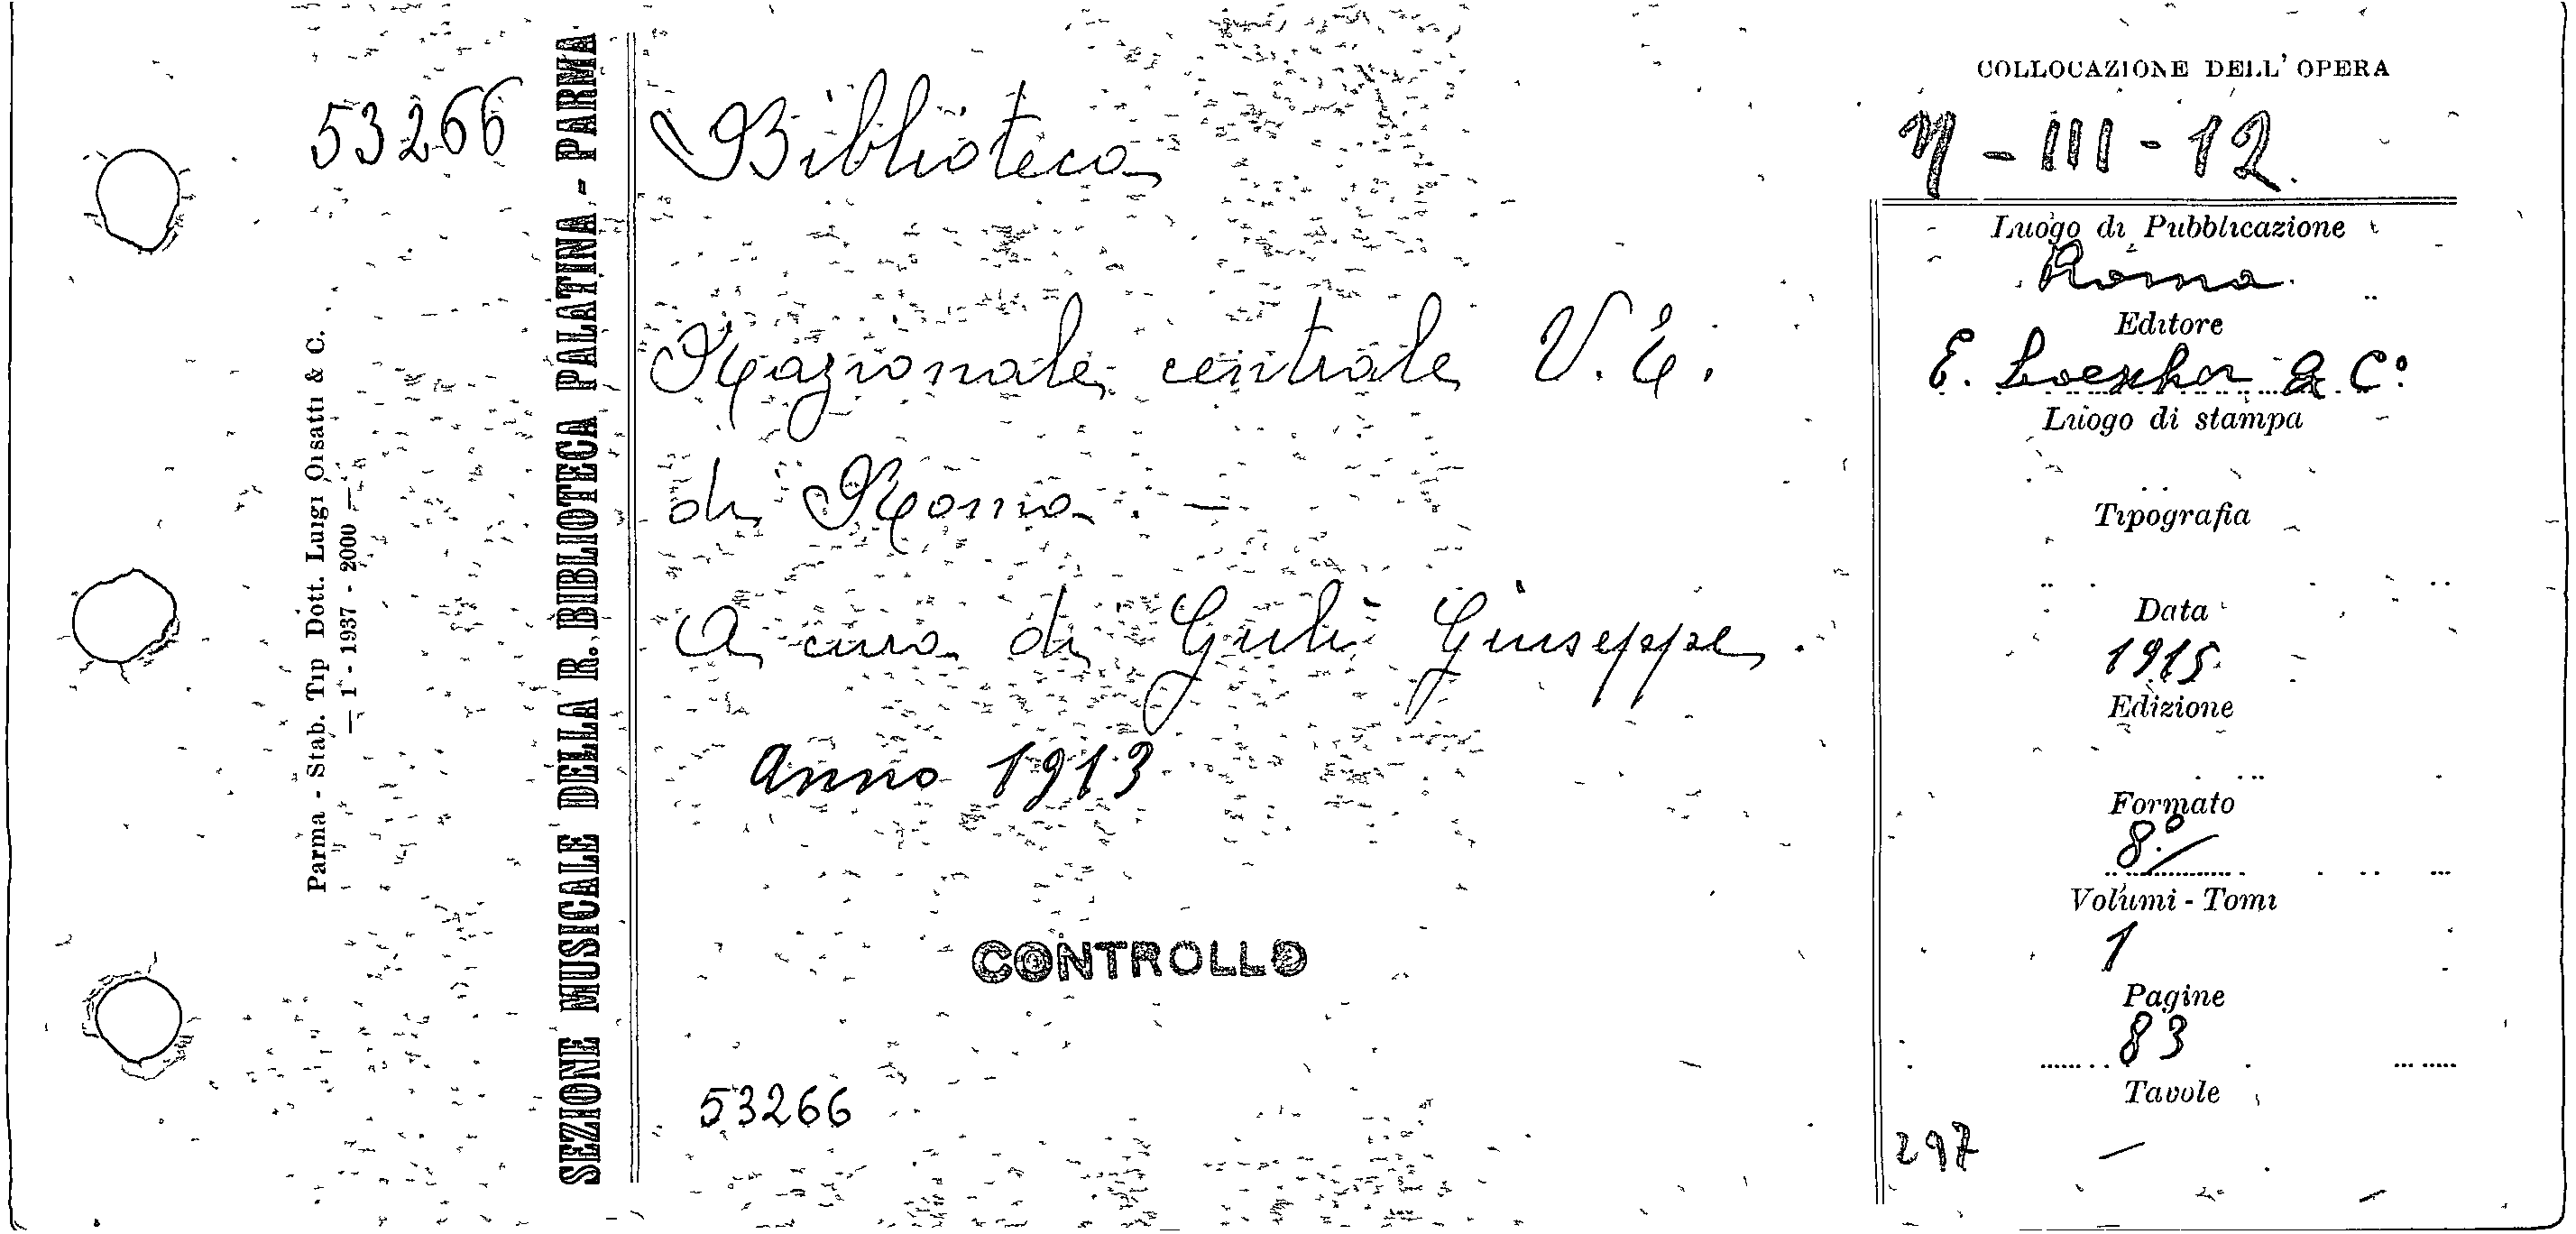 53266
Parma - Stab. Tip Dott. Luigi Orsatti & C.
— 1 - 1937 - 2000 —
SEZIONE MUSICALE DELLA R. BIBLIOTECA PALATINA - PARMA
Biblioteca
Nazionale centrale V. E.
di Roma. —
A cura di Giuli Giuseppe.
Anno 1913
CONTROLLO
53266
COLLOCAZIONE DELL' OPERA
- III - 12.
Luogo di Pubblicazione
Roma.
Editore
E. Loescher & Cº
Luogo di stampa
Tipografia
Data
1915.
Edizione
Formato
8º
Volumi - Tomi
1
Pagine
83
Tavole
297
—